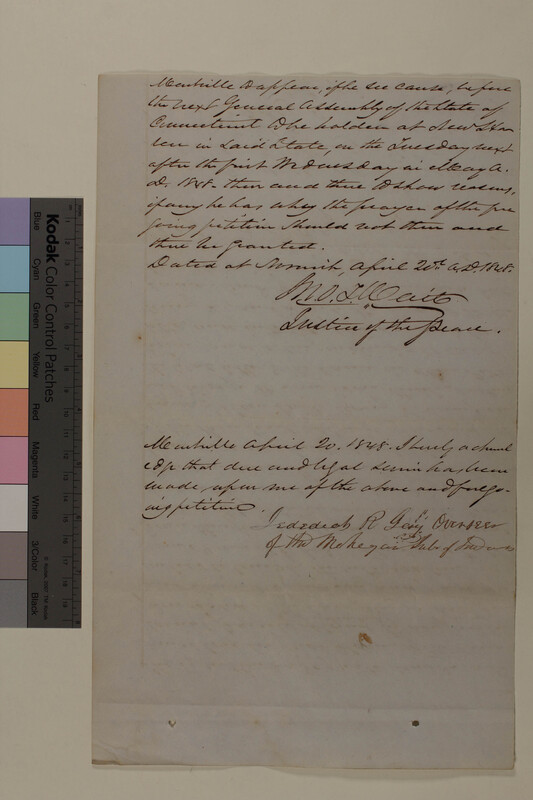 Montville to appear, if he see cause, before
the next General Assembly of the State of
Connecticut to be holden at New Ha-
ven in said State, on the Tuesday next
after the first Wednesday in May A.
D. 1848. then and there to show reasons,
if any he has why the prayer of the fore
going petition should not then and
there be granted.
Dated at Norwich, April 20th A.D. 1848.
Jno. T. Wait
Justice of the peace.
Montville April 20. 1848. I hereby acknowl
edge that due and legal service has been
made upon me of the above and forego-
ing petition
Jedediah R Gay Overseer
of the Mohegan Tribe of Indians
Kodak
Color Control Patches
Blue
Cyan
Green
Yellow
Red
Magenta
White
3/Color
Black